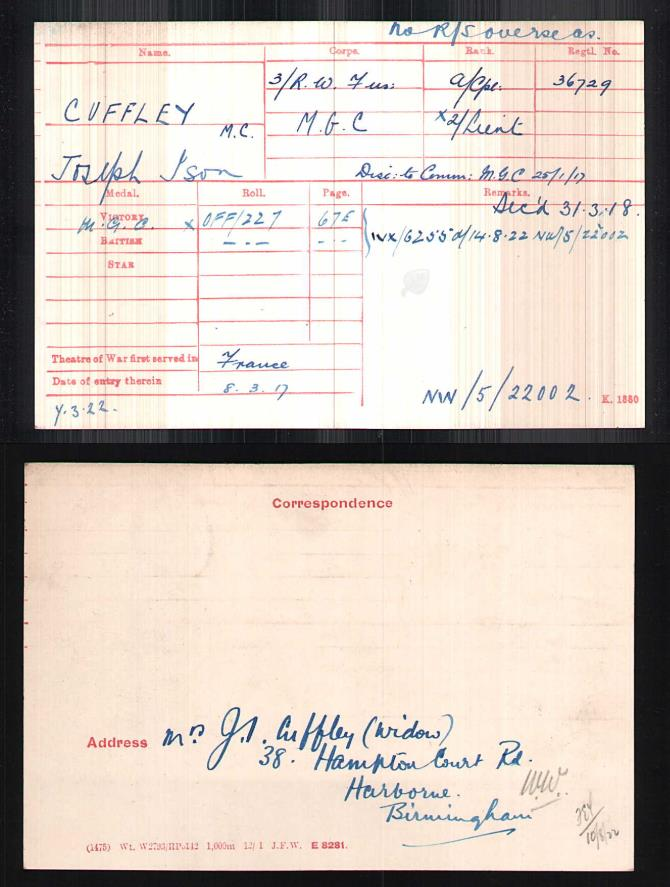 No R/S overseas.
Name. Corps. Rank. Regtl. No.
3/R.W. Fus: a/Cpl. 36729
CUFFLEY M.C. M.G.C x2/Lieut
Joseph Ison Disc: to Comm: M.G.C 25/1/17
Medal. Roll. Page. Remarks.
Dec'd 31.3.18.
VICTORY M.G.C. x OFF/227 67E
BRITISH -- -- NW/5/22002
STAR
Theatre of War first served in France
Date of entry therein 8.3.17
NW/5/22002. K. 1380
Y.3.22.
Correspondence
Address Mrs J.I. Cuffley (Widow)
38. Hampton Court Rd.
Harborne.
W.W.
Birmingham
10/8/22
(1475) Wt. 1,000m J.F.W. E 8281.